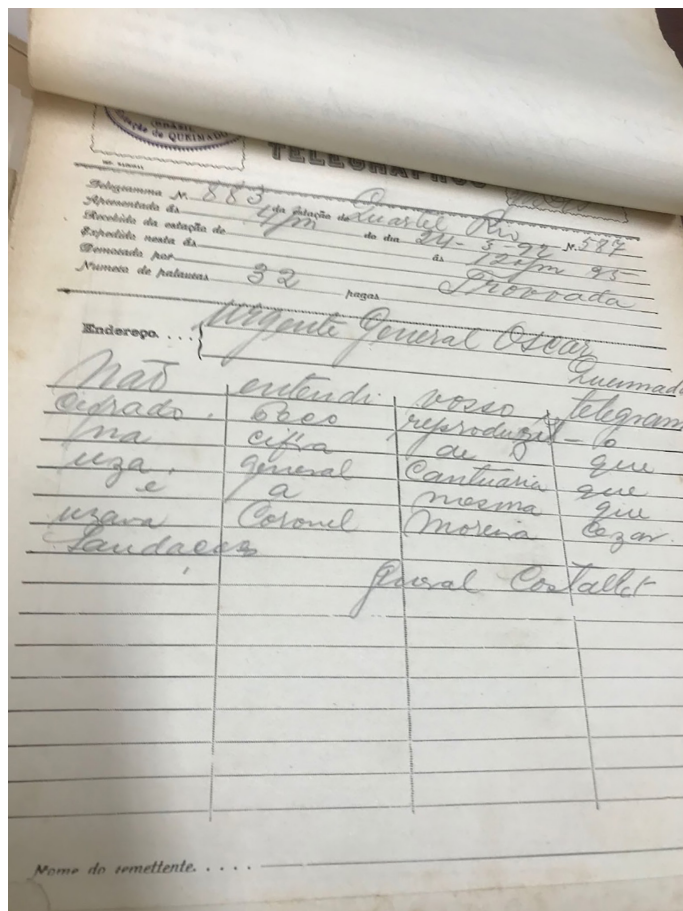 BRASIL
Estação de QUEIMADAS
TELEGRAPHOS
Telegramma N. 883 da estação de Quartel Rio N. 587
Apresentado ás 4pm do dia 24-3-97
Recebido da estação de ás 12 pm 95
Expedido nesta ás
Demorado por Trovoada
Numero de palavras 32 pagas
Endereço.... { Urgente General Oscar
Queimadas
Não entendi vosso telegram
cifrado. Peço reproduzil-o
na cifra de que
uza general Cantuária que
é a mesma que
uzava Coronel Moreira Cezar.
Saudações
General Costallat
Nome do remettente.....